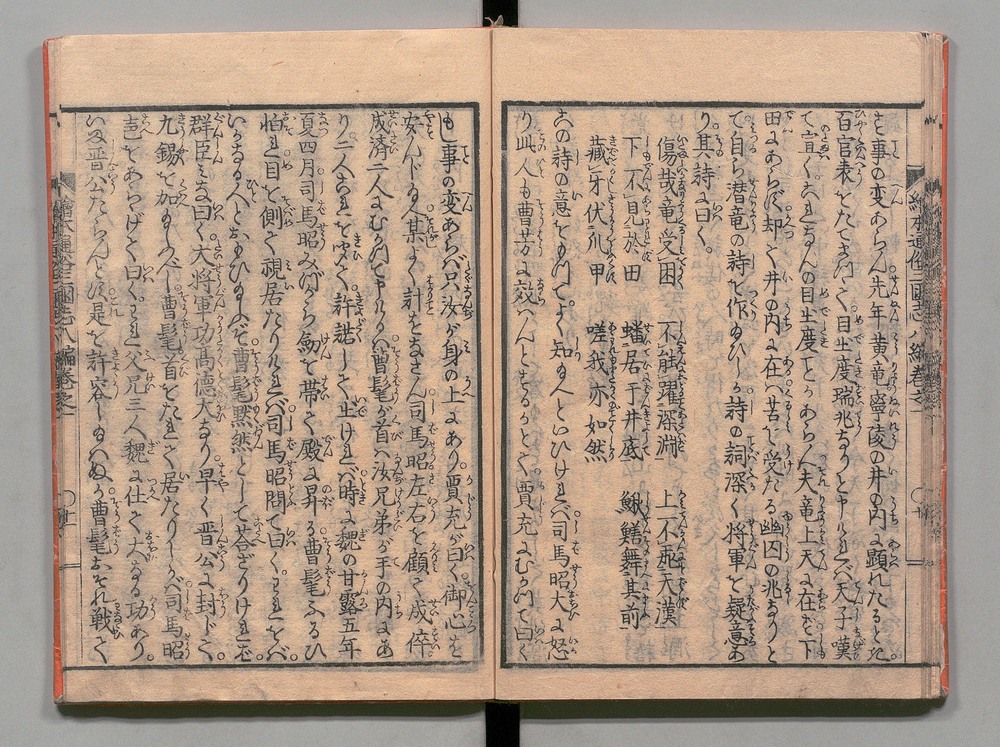 繪本通俗三國志八編巻之一
〇十
さ事の変あらん先年黄竜寧陵の井の内に顕れたると記
百官表をたてまつて目出度瑞兆なりと申ければ天子嘆
て宣くこれなんの目出度ことかあらん夫竜上天に在ず下
田にあらず却て井の内に在は苦を受たる幽囚の兆なりと
て自ら潜竜の詩を作り玉ひしが詩の詞深く将軍を疑意あ
り其詩に曰く
傷哉竜受困　不能躍深淵　上不飛天漢
下不見於田　蟠居于井底　鰍鱔舞其前
藏牙伏爪甲　嗟我亦如然
この詩の意をもつてよく知り玉へといひければ司馬昭大に怒
り此人も曹芳に效へんとするかとて賈充にむかつて曰く
もし事の変あらば只汝が身の上にあり賈充が曰く御心を
安んじ玉へ某よく計をなさん司馬昭左右を顧て成倅
成済二人にむかつて申けるは曹髦が首は汝兄弟が手の内にあ
り二人これをゆくひ許諾して止ければ時に魏の甘露五年
夏四月司馬昭みづから劔を帯て殿に昇る曹髦ふるひ
怕れ目を側て視居たりければ司馬昭問て曰くわれをば
いかなる人とおもひ玉ふぞ曹髦黙然として答ざりければ
群臣みな曰く大将軍功高徳大なり早く晋公に封じて
九錫を加へ玉ふべし曹髦首をたれて居たりしかば司馬昭
声をあらげて曰くわれ父兄三人魏に仕て大なる功あり
いま晋公たらんとす是を許容し玉はぬか曹髦おそれ戦て
繪本通俗三國志八編巻之一
〇十一